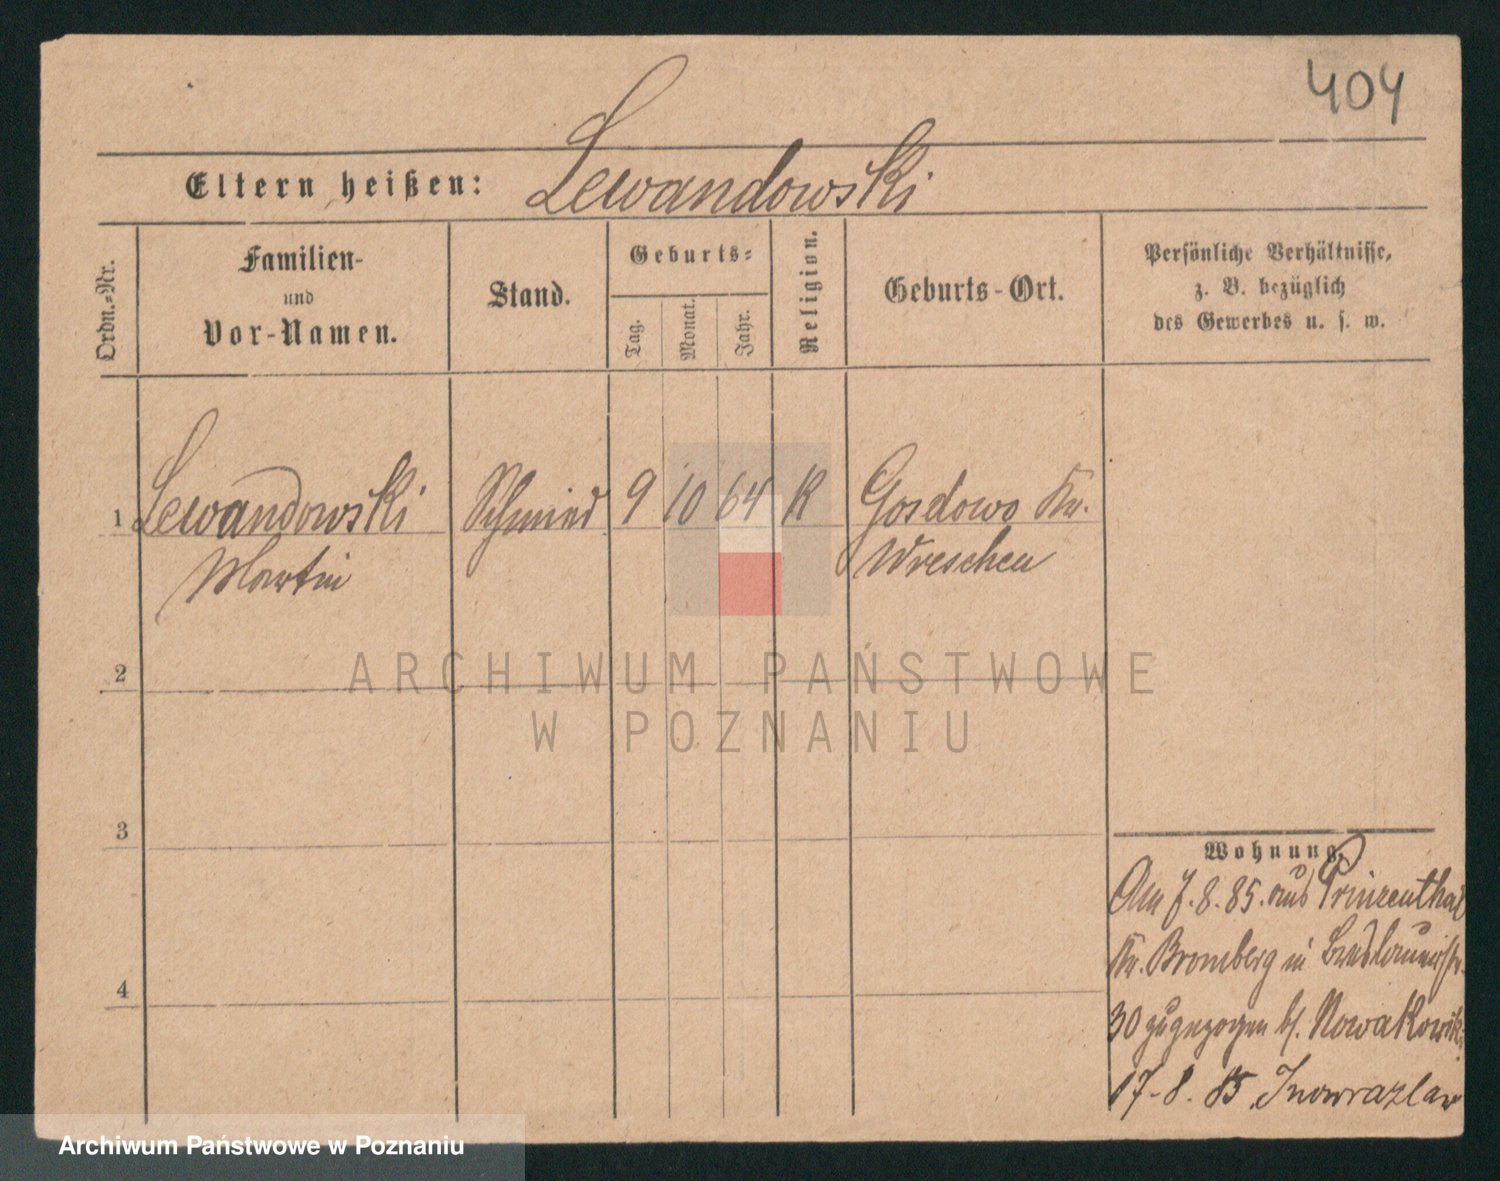 404
Eltern heißen: Lewandowski
Ordn.-Nr.
Familien-
und
Vor-Namen.
Stand.
Geburts-
Tag.
Monat.
Jahr.
Religion.
Geburts-Ort.
Persönliche Verhältnisse,
z. B. bezüglich
des Gewerbes u. s. w.
1 Lewandowski Schmied 9 10 64 K Gosdowo Kr.
Martin Wreschen
2
3
4
Wohnung.
Am 7.8.85. aus Prinzenthal
Kr. Bromberg in
30 zugezogen b/. Nowakowski
17-8.85 Inowrazlaw
ARCHIWUM PAŃSTWOWE
W POZNANIU
Archiwum Państwowe w Poznaniu